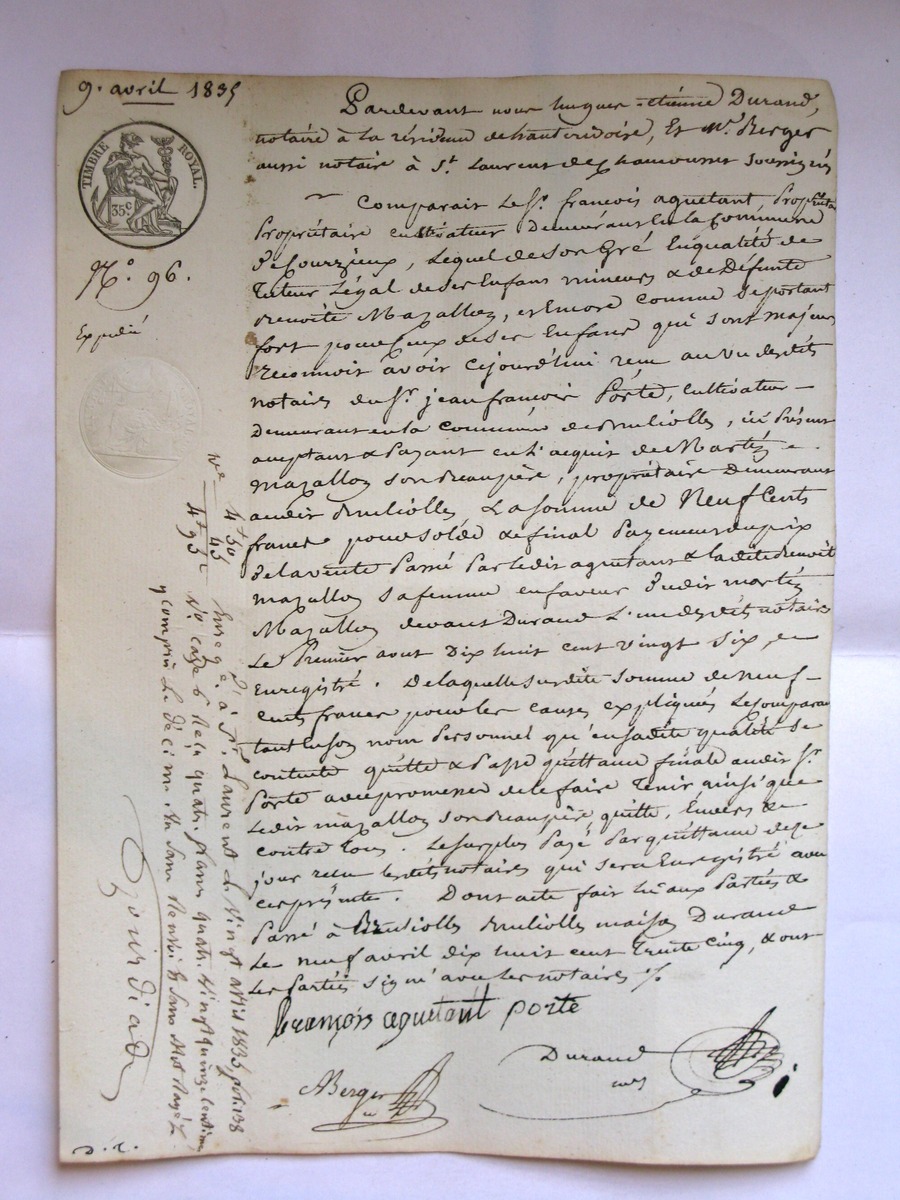 9. avril 1835
TIMBRE ROYAL.
35c
N.° 96.
Expedié
Pardevant nous hugues-etienne Durand,
notaire à la residence de hauterivoire, Et Mr. Berger
aussi notaire à St. Laurent de chamousset soussignés
Comparait Le Sr. francois aguetant, Proprietaire
Propriétaire cultivateur Demeurant En la Commune
de Courzieux, Lequel de son Gré En qualité de
Tuteur Légal de ses Enfans mineurs & de Défunte
Benoite Mazalloz, et Encore comme se portant
fort pour Ceux de ses Enfans qui sont majeurs
reconnoit avoir Cejourd'hui reçu au vu desdits
notaires du Sr. jean francois Porte, Cultivateur
Demeurant en la commune de Brullioles, ici Présent
acceptant & Payant en L'acquit de
mazalloz son Beaupère, propriétaire Demeurant
audit Brulliolles La somme de Neuf Cents
francs pour solde & final Payement du prix
de la vente Passé Par ledit aguetant & la dite Benoite
mazalloz sa femme en faveur dudit
Mazalloz devant Durand L'un desdits notaires
Le Premier aout Dix huit cent vingt six,
Enregistré. De laquelle susdite somme de neuf
cents francs pour les causes expliqués Le comparant
tant En son nom Personnel qu'en sadite qualité se
contente quitte & Passe quittance finale audit Sr.
Porte avec promesse de le faire Tenir ainsi que
Ledit mazalloz son Beaupère quitte, Envers &
contre Tous. Le surplus Payé Par quittance de ce
jour reçu lesdits notaires qui sera Enregistré avec
ces présentes. Dont acte fait Lu aux Parties &
Passé à Brulliolles maison Durand
Le neuf avril dix huit cent Trente Cinq, & ont
Les Parties signé avec les notaires ./.
françois aguetant porte
Durand
ABerger
4f 50
45
4f 95c
Enregé. à St. Laurent le vingt avril 1835, fol. 138
Vo. case 6 Reçu quatre francs quatre vingt quinze centimes
y compris Le décime sans Renvoi & sans Mot Rayé